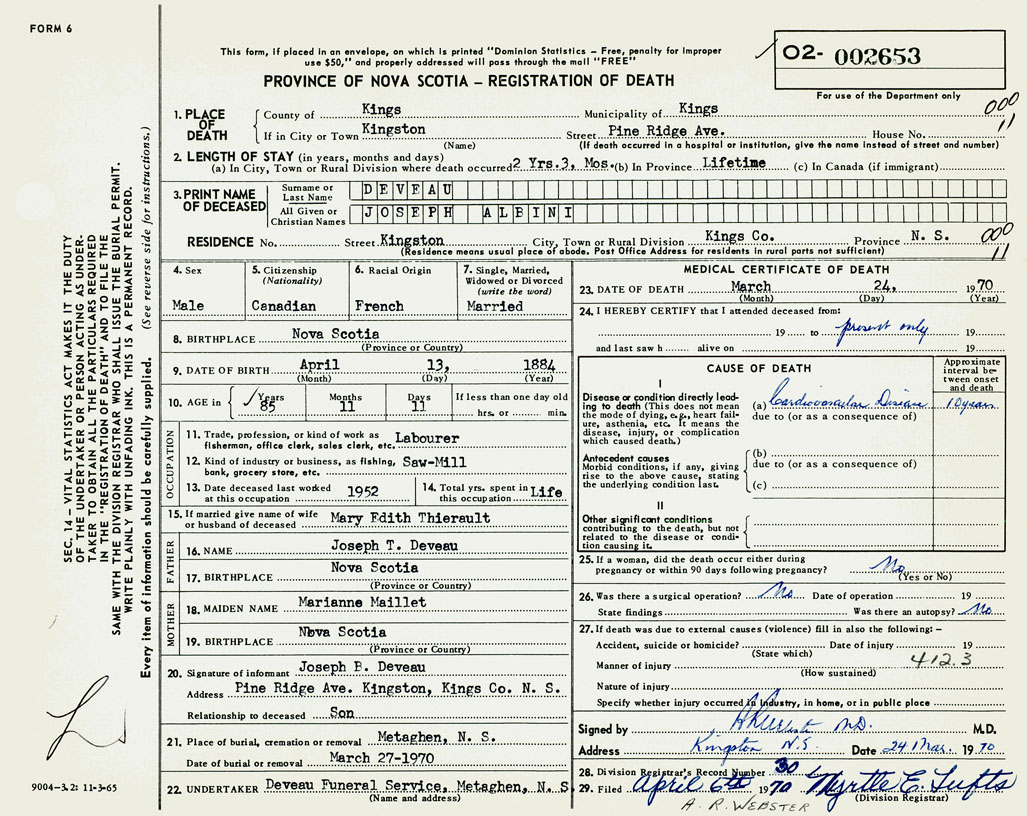 FORM 6
This form, if placed in an envelope, on which is printed "Dominion Statistics – Free, penalty for improper
use $50," and properly addressed will pass through the mail "FREE"
PROVINCE OF NOVA SCOTIA – REGISTRATION OF DEATH
O2- 002653
For use of the Department only
000
11
1. PLACE OF DEATH
County of Kings Municipality of Kings
If in City or Town Kingston Street Pine Ridge Ave. House No.
(Name) (If death occurred in a hospital or institution, give the name instead of street and number)
2. LENGTH OF STAY (in years, months and days)
(a) In City, Town or Rural Division where death occurred 2 Yrs.3, Mos. (b) In Province Lifetime (c) In Canada (if immigrant)
3. PRINT NAME OF DECEASED
Surname or Last Name DEVEAU
All Given or Christian Names JOSEPH ALBINI
RESIDENCE No. Street Kingston City, Town or Rural Division Kings Co. Province N. S. 000
(Residence means usual place of abode. Post Office Address for residents in rural parts not sufficient) 11
4. Sex
Male
5. Citizenship
(Nationality)
Canadian
6. Racial Origin
French
7. Single, Married,
Widowed or Divorced
(write the word)
Married
8. BIRTHPLACE Nova Scotia
(Province or Country)
9. DATE OF BIRTH April 13, 1884
(Month) (Day) (Year)
10. AGE in Years Months Days If less than one day old
85 11 11 hrs. or min.
OCCUPATION
11. Trade, profession, or kind of work as Labourer
fisherman, office clerk, sales clerk, etc.
12. Kind of industry or business, as fishing, Saw-Mill
bank, grocery store, etc.
13. Date deceased last worked
at this occupation 1952
14. Total yrs. spent in
this occupation Life
15. If married give name of wife
or husband of deceased Mary Edith Thierault
FATHER
16. NAME Joseph T. Deveau
17. BIRTHPLACE Nova Scotia
(Province or Country)
MOTHER
18. MAIDEN NAME Marianne Maillet
19. BIRTHPLACE Nova Scotia
(Province or Country)
20. Signature of informant Joseph B. Deveau
Address Pine Ridge Ave. Kingston, Kings Co. N. S.
Relationship to deceased Son
21. Place of burial, cremation or removal Metaghen, N. S.
Date of burial or removal March 27-1970
22. UNDERTAKER Deveau Funeral Service, Metaghen, N. S
(Name and address)
MEDICAL CERTIFICATE OF DEATH
23. DATE OF DEATH March 24, 1970
(Month) (Day) (Year)
24. I HEREBY CERTIFY that I attended deceased from:
19 to present only 19
and last saw h alive on 19
CAUSE OF DEATH
Approximate
interval be-
tween onset
and death
I
Disease or condition directly lead-
ing to death (This does not
mean the mode of dying, e.g., heart fail-
ure, asthenia, etc. It means the
disease, injury, or complication
which caused death.)
(a) Cardiovascular Disease 10 years
due to (or as a consequence of)
Antecedent causes
Morbid conditions, if any, giving
rise to the above cause, stating
the underlying condition last.
(b)
due to (or as a consequence of)
(c)
II
Other significant conditions
contributing to the death, but not
related to the disease or condi-
tion causing it.
25. If a woman, did the death occur either during
pregnancy or within 90 days following pregnancy? No
(Yes or No)
26. Was there a surgical operation? No Date of operation 19
State findings Was there an autopsy? No
27. If death was due to external causes (violence) fill in also the following: –
Accident, suicide or homicide? Date of injury 19
(State which)
412.3
Manner of injury
(How sustained)
Nature of injury
Specify whether injury occurred in industry, in home, or in public place
Signed by M.D. M.D.
Address Kingston N.S. Date 24 Mar. 1970
28. Division Registrar's Record Number 30
29. Filed April 6th 1970 Myrtle E. Tufts
(Division Registrar)
A. R. WEBSTER
SEC. 14 – VITAL STATISTICS ACT MAKES IT THE DUTY
OF THE UNDERTAKER OR PERSON ACTING AS UNDER-
TAKER TO OBTAIN ALL THE PARTICULARS REQUIRED
IN THE "REGISTRATION OF DEATH" AND TO FILE THE
SAME WITH THE DIVISION REGISTRAR WHO SHALL ISSUE THE BURIAL PERMIT.
WRITE PLAINLY WITH UNFADING INK. THIS IS A PERMANENT RECORD.
Every item of information should be carefully supplied. (See reverse side for instructions.)
9004-3.2: 11-3-65